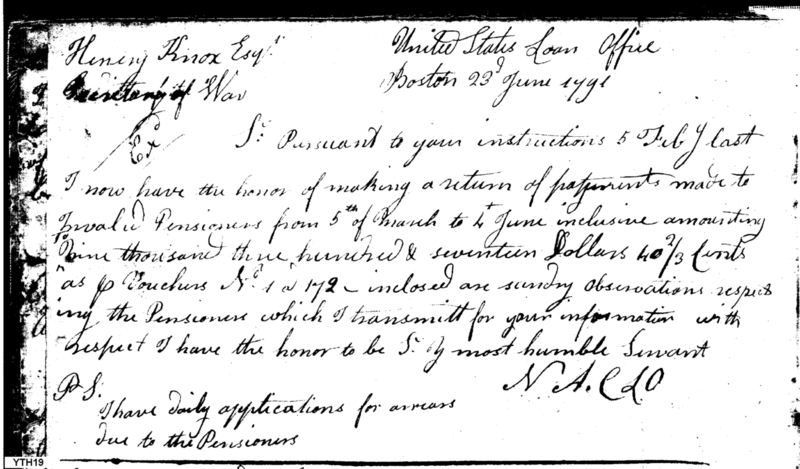 Henery Knox Esqr.
United States Loan Office
Secretary of War
Boston 23d June 1791
Ex
Sr. Pursuant to your instructions 5 Feby last
I now have the honor of making a return of payments made to
Invalid Pensioners from 5th of March to 4t June inclusive amounting
Nine thousand three hundred & seventeen Dollars 40 2/3 Cents
as p Vouchers No. 1 a 172 - inclosed are sundry observations respect
ing the Pensioners which I transmitt for your information with
respect I have the honor to be Sr. Y most humble Servant
N A. C L O
P. S.
I have daily applications for arrears
due to the Pensioners
YTH19